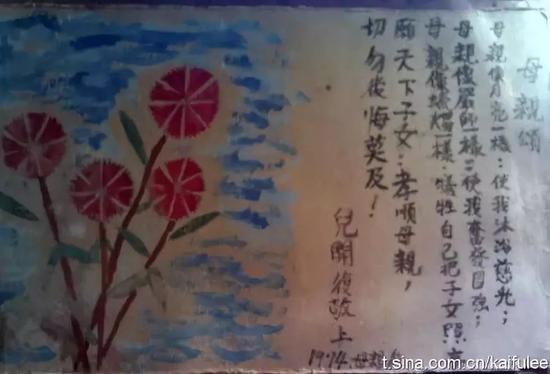 母親頌
母親像月亮一樣：使我沐浴慈光；
母親像嚴師一樣：使我奮發自強；
母親像蠟燭一樣：犧牲自己把子女照亮
願天下子女：孝順母親，
切勿後悔莫及！
兒開復敬上
1974.母親
t.sina.com.cn/kaifulee